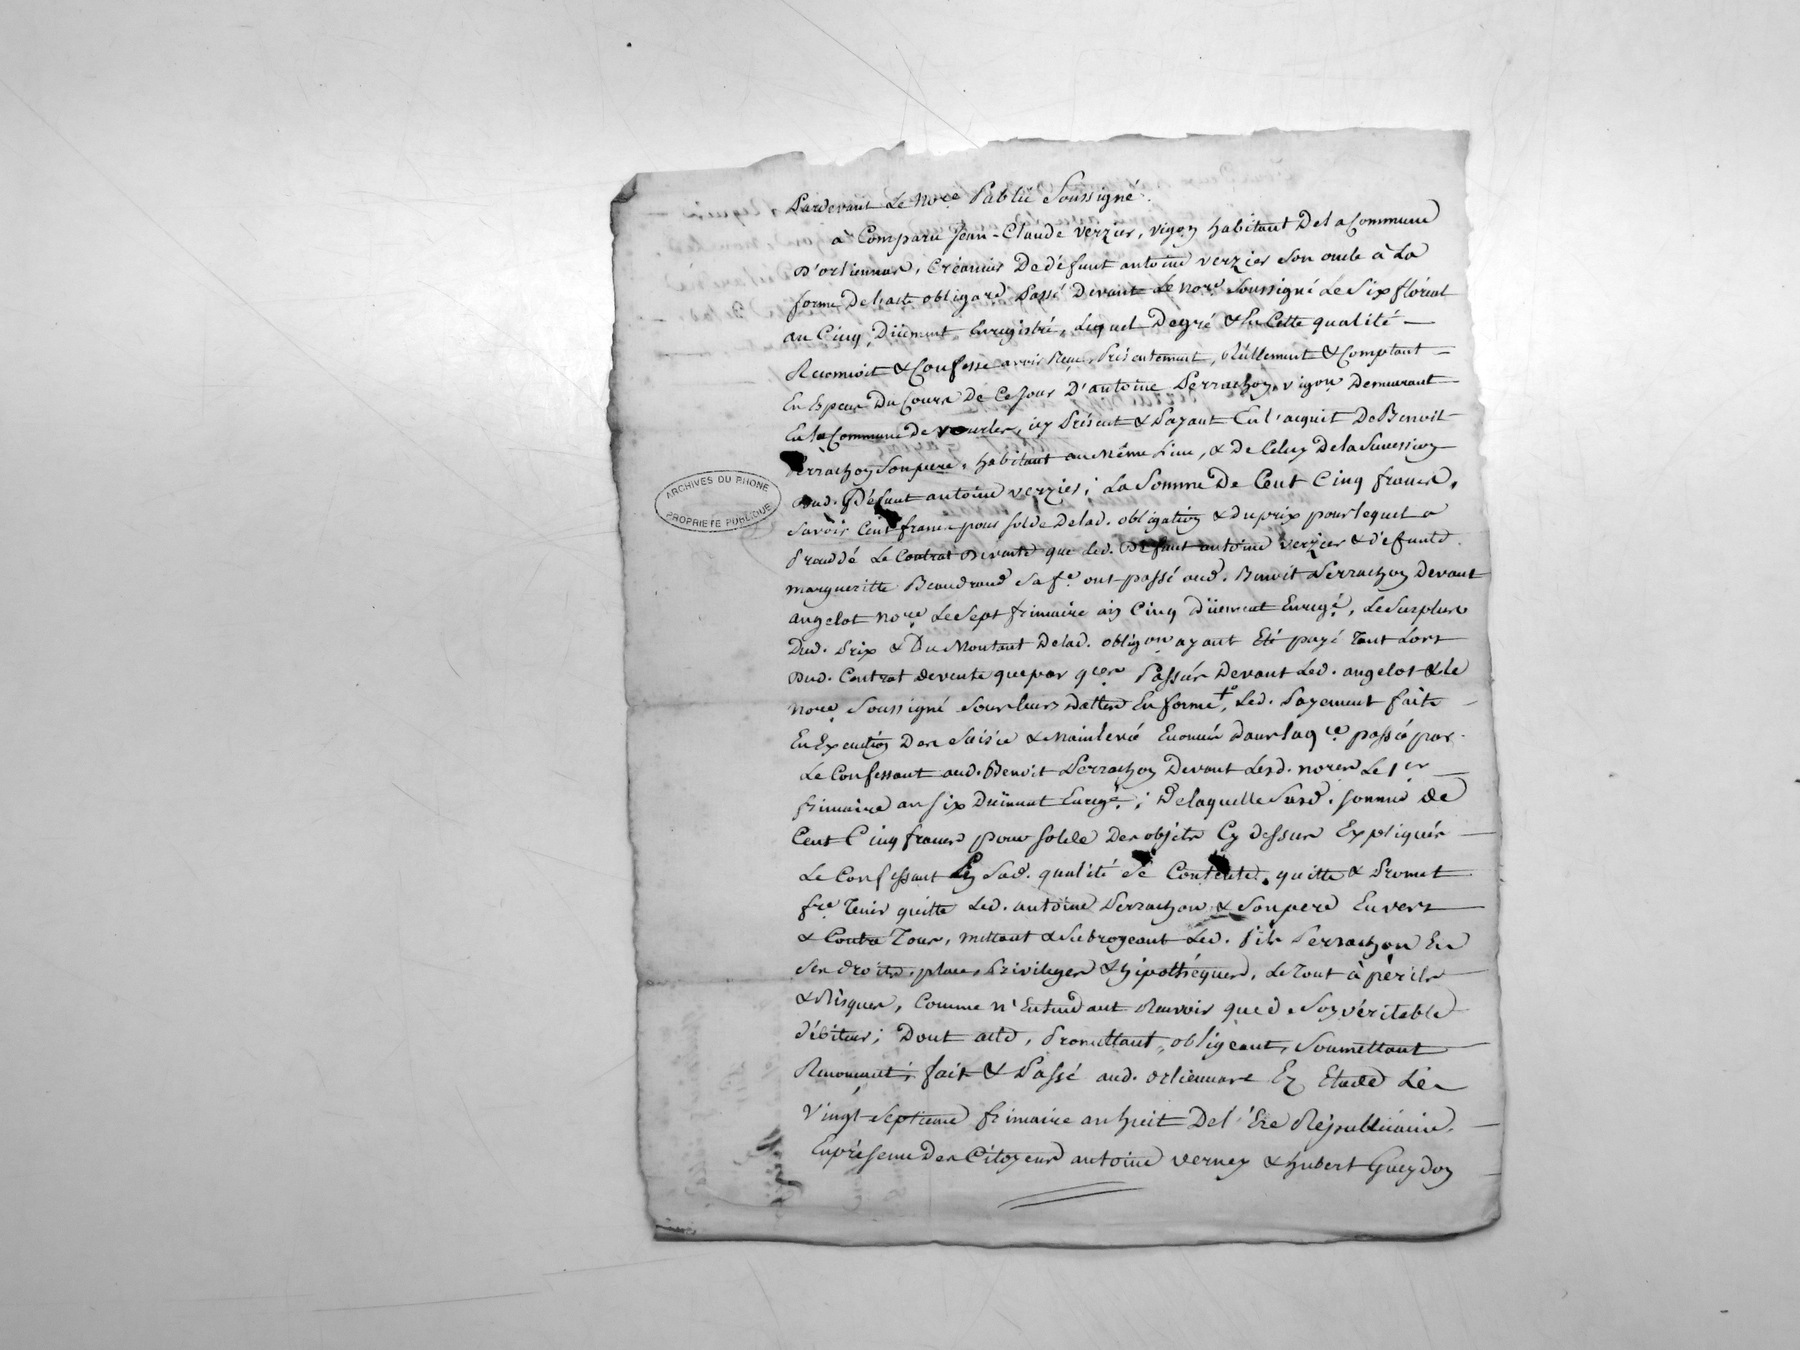 Pardevant Le No.re Public Soussigné.
à Comparu Jean-Claude Verzier, vigon habitant De la Commune
D'orliennas, Créancier De défunt antoine verzier son oncle à La
forme de l'acte obligaré Passé Devant Le Nore. Soussigné Le Six floréal
an Cinq, Düement Enregistré, Lequel De gré & En Cette qualité
Reconnoit & Confesse avoir Reçu Présentement, Réellement & Comptant
En Espece Du Cours De Ce jour D'antoine Perrachon, vigon Demeurant
En la Commune de vourles, icy Présent & Payant En l'acquit De Benoit
Perrachon Son pere, habitant au Même Lieu, & De Celuy De la Succession
Dud. Défunt antoine verzier; La Somme De Cent Cinq francs,
Savoir Cent francs pour solde De lad. obligation & du prix pour lequel a
Procédé Le Contrat De vente que led. Défunt antoine verzier & défunte
margueritte Beaudrand Sa fe. ont passé aud. Benoit Perrachon Devant
angelot nore. Le Sept frimaire an Cinq düement Enregé, Le Surplus
Dud. Prix & Du Montant De lad. obligon. ayant Eté payé Tant Lors
Dud. Contrat de vente que par qces. Passés Devant Led. angelot & le
nore. Soussigné Sous leurs dattes En forme, + Led. Payement fait
En Execution Des Saisie & Mainlevé Enoncés Dans la qce. passé par
Le Confessant aud. Benoit Perrachon Devant Lesd. nores Le 1er
frimaire an Six Düement Enregé; De laquelle Susd. somme de
Cent Cinq francs pour solde Des objets Cy dessus Expliqués
Le Confessant En Sad. qualité Se Contente, quitte & Promet
fre. Tenir quitte Led. antoine Perrachon & Son pere Envers
& Contre Tous, mettant & Subrogeant Led. fils Perrachon En
Ses droits, place, Privileges & hipothéques, Le Tout à périls
& Risques, Comme n'Entendant Recevoir que de Son véritable
débiteur; Dont acte, Promettant, obligeant, Soumettant
Renonçant; fait & Passé aud. orlienas En Etude Le
Vingt Septieme frimaire an huit De l'Ere Républicaine,
En présence Des Citoyens antoine verney & hubert Gueydon
ARCHIVES DU RHONE
PROPRIETE PUBLIQUE